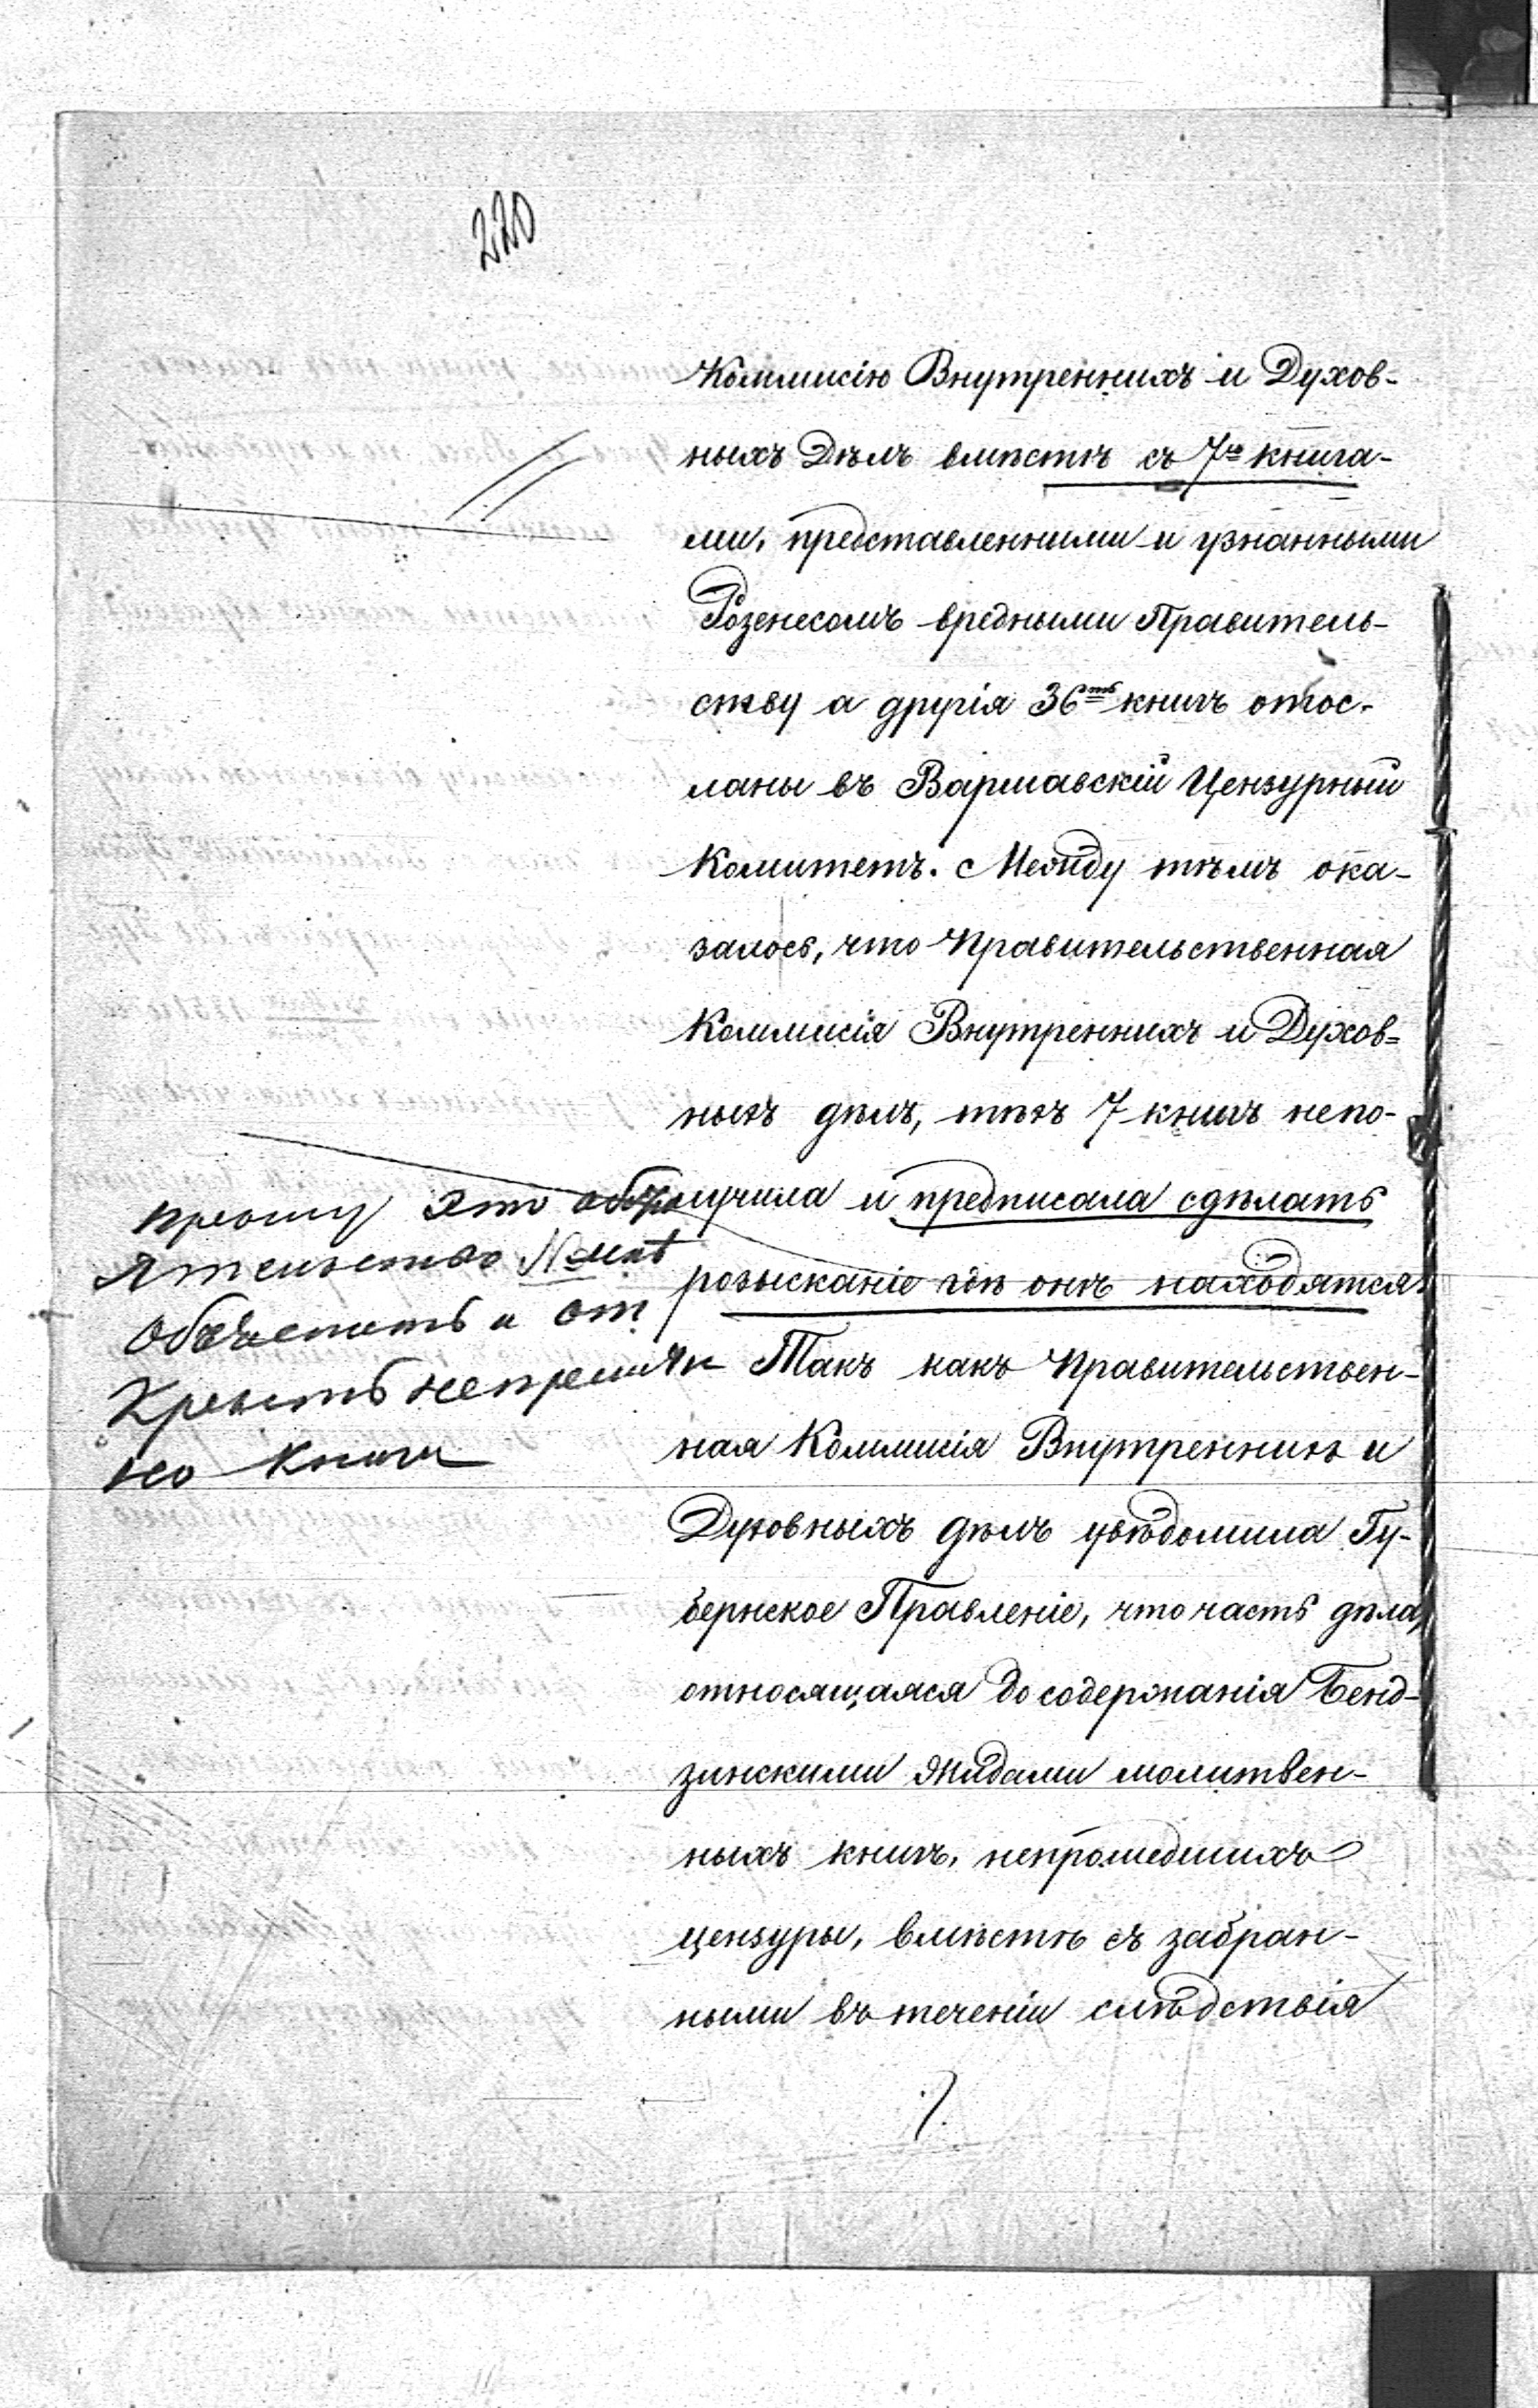 220
Коммисію Внутреннихъ и Духов-
ныхъ Дѣлъ вмѣстѣ съ 7ю книга-
ми, представленными и узнанными
Розенесомъ вредными Правитель-
ству а другія 36ть книгъ отос-
ланы въ Варшавскій Цензурный
Комитетъ. Между тѣмъ ока-
залось, что Правительственная
Коммисія Внутреннихъ и Духов-
ныхъ дѣлъ, тѣхъ 7 книгъ непо-
лучила и предписала сдѣлать
розысканіе гдѣ онѣ находятся.
Такъ какъ Правительствен-
ная Коммисія Внутреннихъ и
Духовныхъ дѣлъ увѣдомила Гу-
бернское Правленіе, что часть дѣла,
относящаяся до содержанія Бенд-
зинскими Жидами молитвен-
ныхъ книгъ, непрошедшихъ
цензуры, вмѣстѣ съ забран-
ными въ теченіи слѣдствія
./.
прошу это обсто
ятельство мнѣ
объяснить и от
крыть непремѣн
но книги